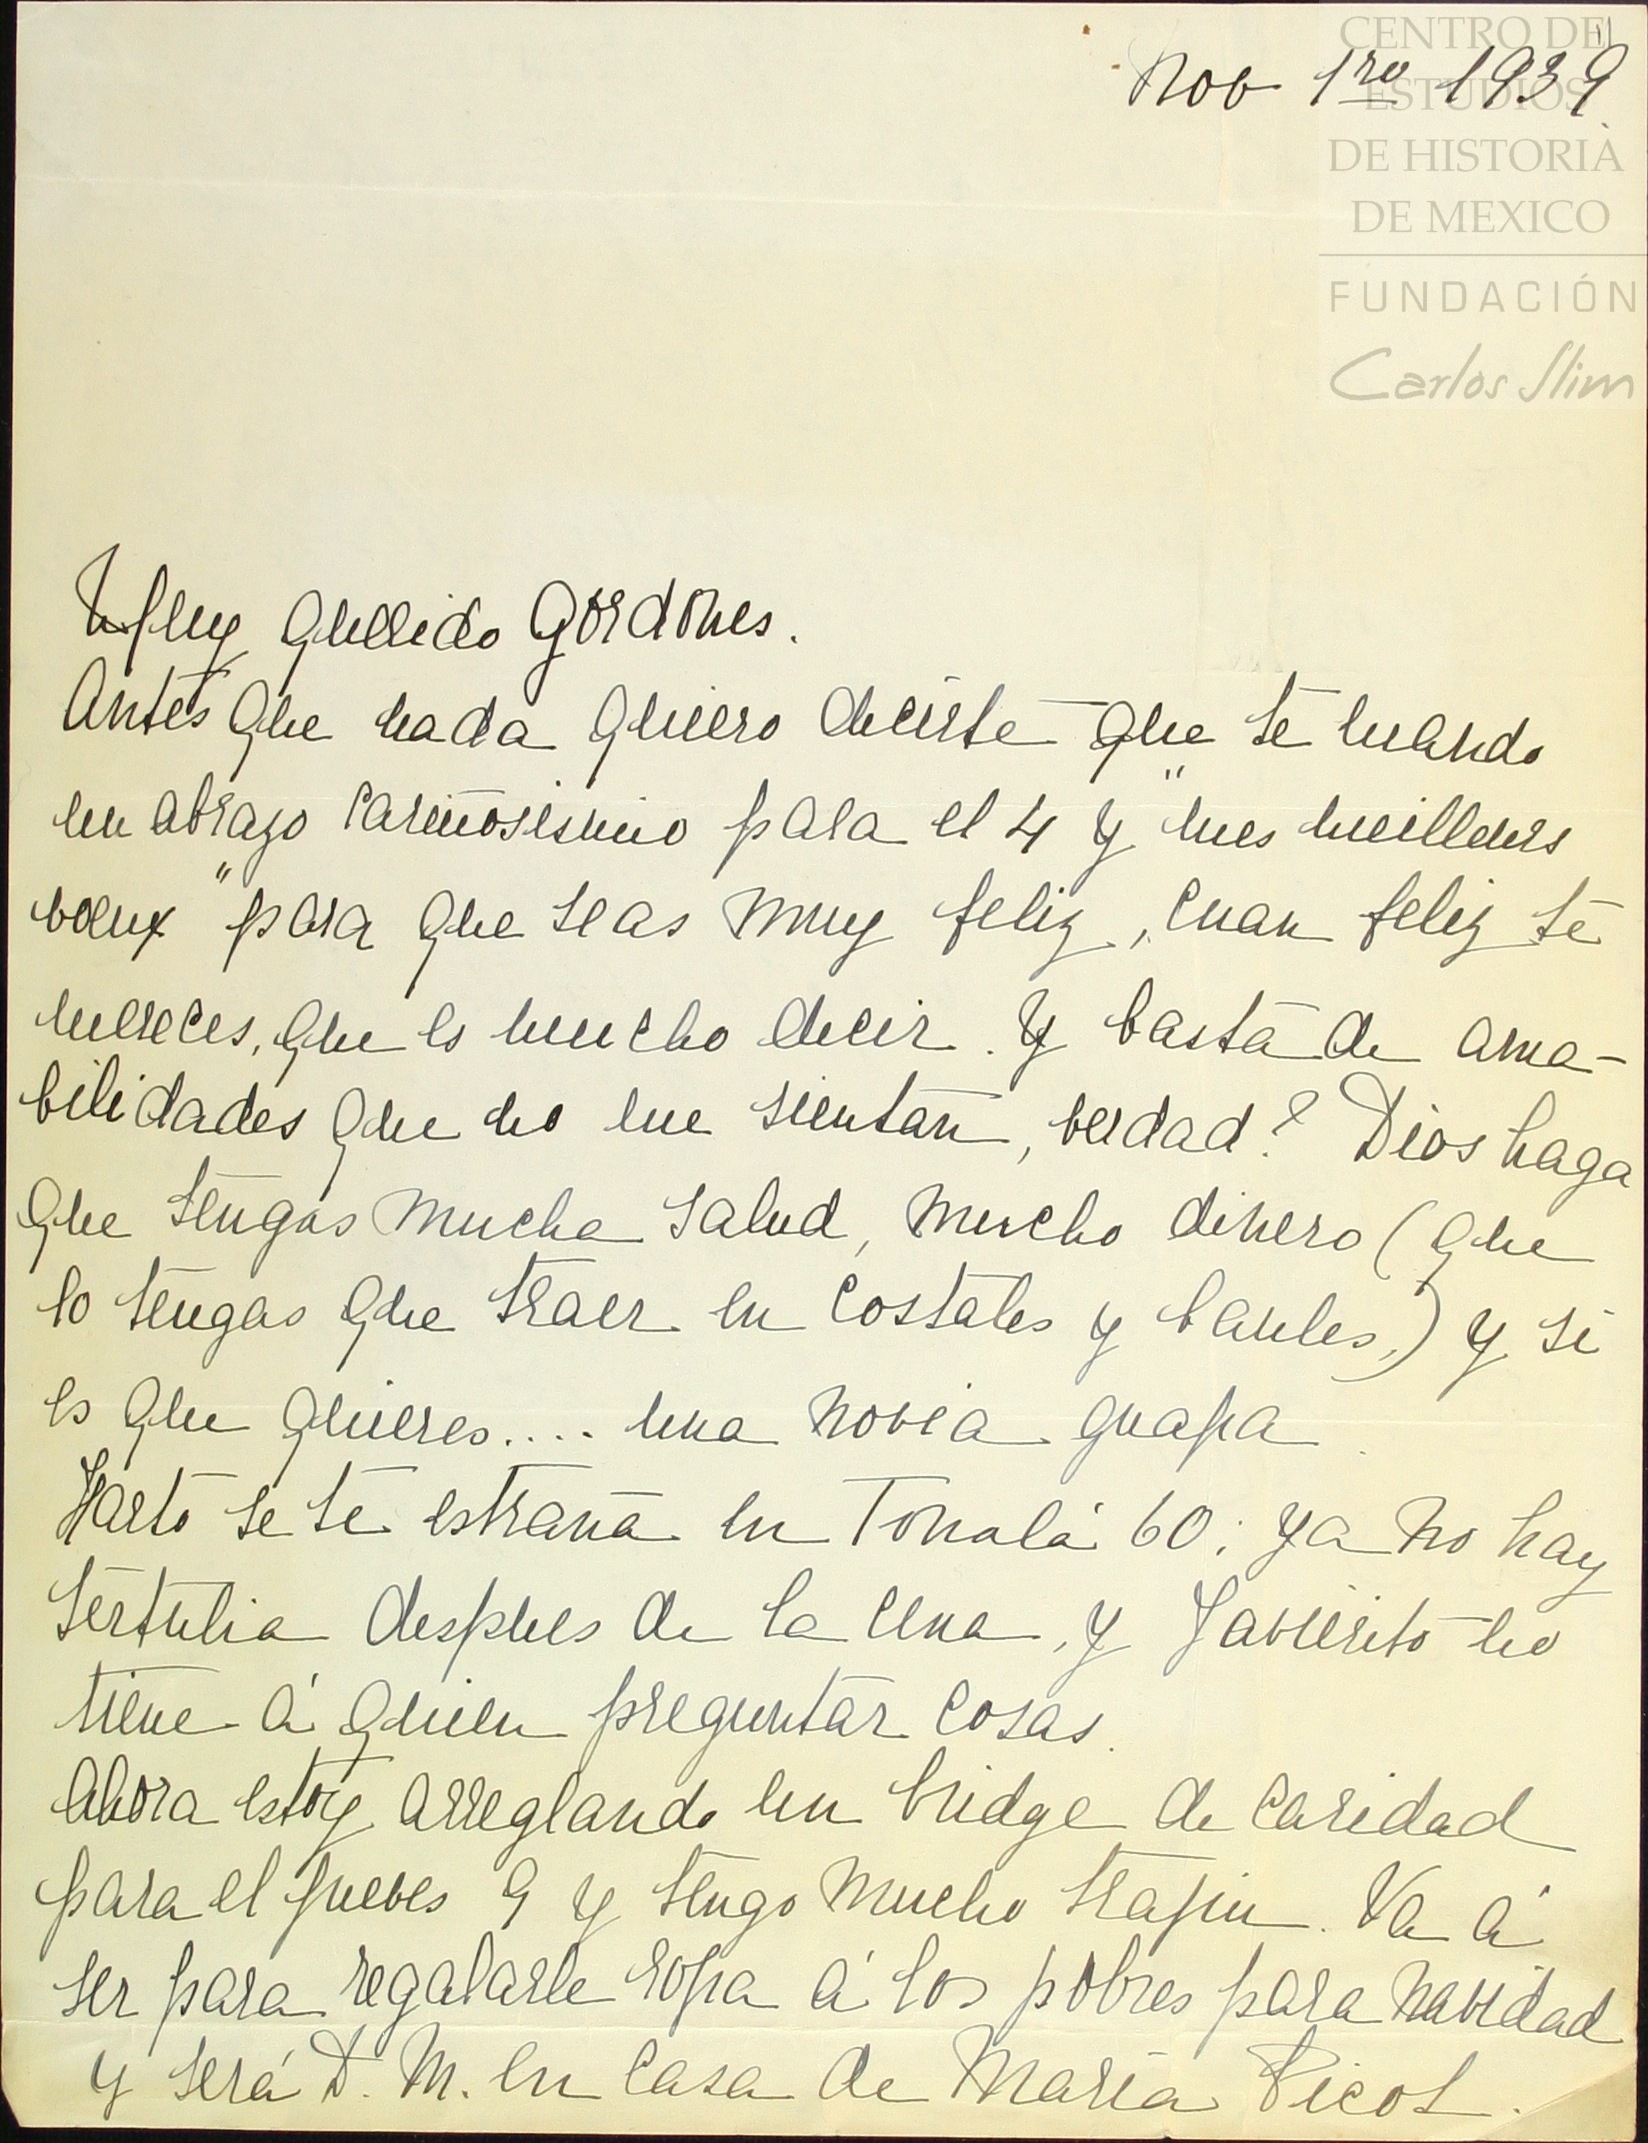 CENTRO DE
ESTUDIOS
DE HISTORIA
DE MEXICO
FUNDACIÓN
Carlos Slim
Nov 1ro 1939
Muy querido Gordones.
Antes que nada quiero decirte que te mando
un abrazo cariñosisimo para el 4 y "mes meilleurs
voeux" para que seas muy feliz, cuan feliz te
mereces, que es mucho decir. Y basta de ama-
bilidades que no me sientan, verdad? Dios haga
que tengas mucha salud, mucho dinero (que
lo tengas que traer en costales y baules,) y si
es que quieres.... una novia guapa.
Harto se te estraña en Tonalá 60; ya no hay
tertulia despues de la cena, y Javierito no
tiene á quien preguntar cosas.
Ahora estoy arreglando un bridge de caridad
para el jueves 9 y tengo mucho trajin. Va á
ser para regalarle ropa á los pobres para navidad
y será D. M. en casa de Maria Picot.